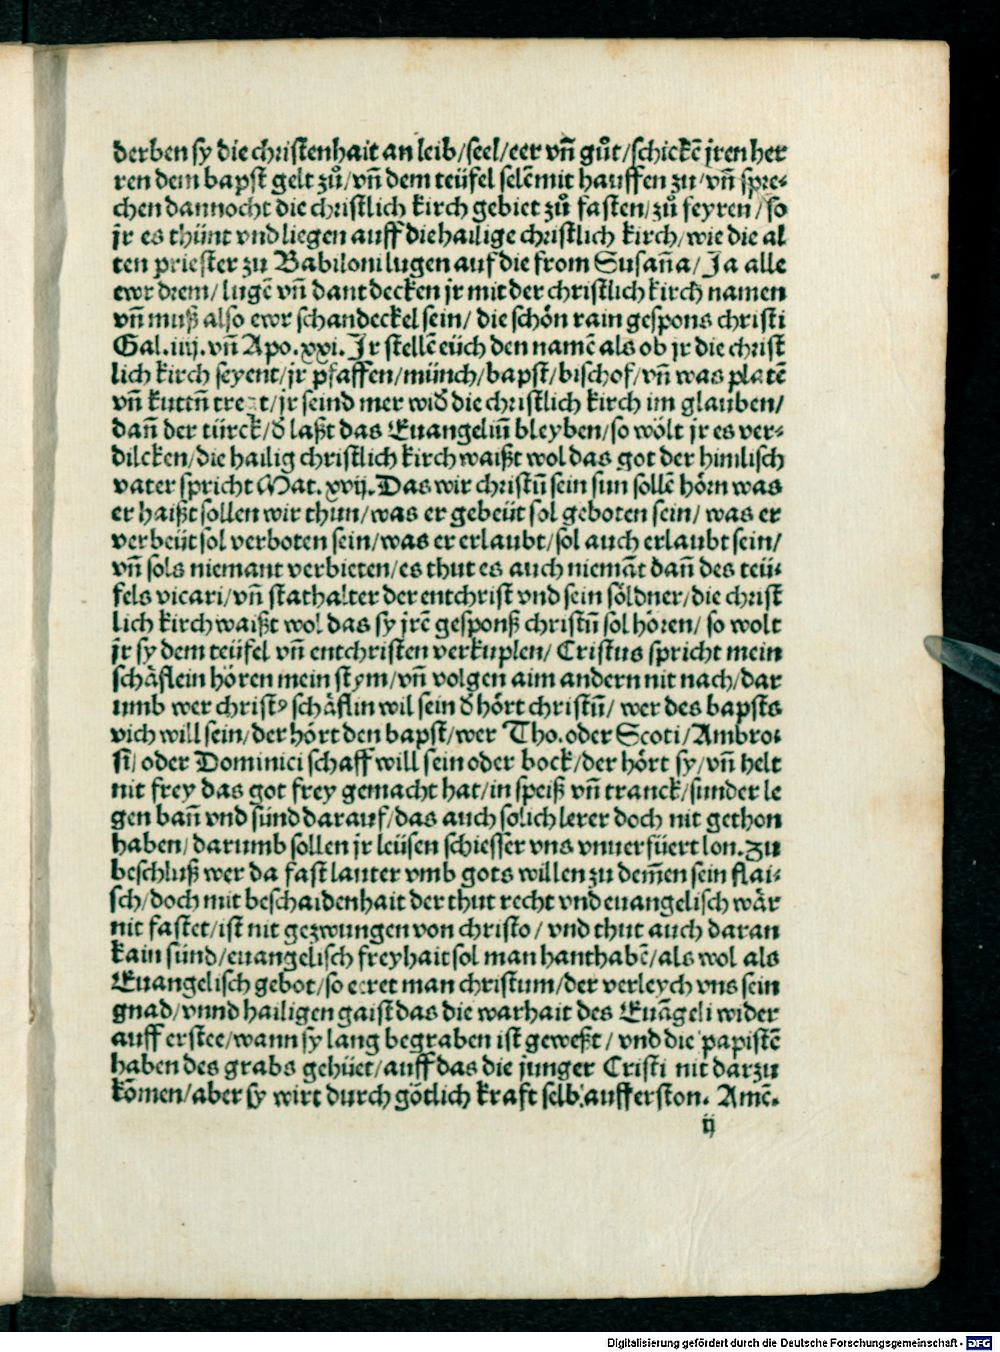 derben sy die christenhait an leib/seel/eer vñ gůt/schickẽ jren her
ren dem bapst gelt zů/vñ dem teüfel selẽ mit hauffen zu/vñ spre⸗
chen dannocht die christlich kirch gebiet zů fasten/zů feyren/so
jr es thünt vnd liegen auff die hailige christlich kirch/wie die al
ten priester zu Babiloni lugen auf die from Susan̄a/Ja alle
ewr drem/lugẽ vñ dant decken jr mit der christlich kirch namen
vñ muß also ewr schandeckel sein/die schön rain gespons christi
Gal.iiij.vñ Apo.xxi.Jr stellẽ eüch den namẽ als ob jr die christ
lich kirch seyent/jr pfaffen/münch/bapst/bischof/vñ was platẽ
vñ kuttñ tregt/jr seind mer wid̕ die christlich kirch im glauben/
dañ der türck/d̕ laßt das Euangeliũ bleyben/so wölt jr es ver⸗
dilcken/die hailig christlich kirch waißt wol das got der himlisch
vater spricht Mat.xvij.Das wir christũ sein sun sollẽ hörn was
er haißt sollen wir thun/was er gebeüt sol geboten sein/was er
verbeüt sol verboten sein/was er erlaubt/sol auch erlaubt sein/
vñ sols niemant verbieten/es thut es auch niemãt dañ des teü⸗
fels vicari/vñ stathalter der entchrist vnd sein söldner/die christ
lich kirch waißt wol das sy jrẽ gesponß christũ sol hören/so wolt
jr sy dem teüfel vñ entchristen verkuplen/Cristus spricht mein
schäflein hören mein stym/vñ volgen aim andern nit nach/dar
umb wer christꝰ schäflin wil sein d̕ hört christũ/wer des bapsts
vich will sein/der hört den bapst/wer Tho.oder Scoti/Ambro⸗
si/oder Dominici schaff will sein oder bock/der hört sy/vñ helt
nit frey das got frey gemacht hat/in speiß vñ tranck/sunder le
gen bañ vnd sünd darauf/das auch solich lerer doch nit gethon
haben/darumb sollen jr leüsen schiesser vns vnuerfüert lon.Zu
beschluß wer da fast lauter vmb gots willen zu dem̃en sein flai⸗
sch/doch mit beschaidenhait der thut recht vnd euangelisch wär
nit fastet/ist nit gezwungen von christo/vnd thut auch daran
kain sünd/euangelisch freyhait sol man hanthabẽ/als wol als
Euangelisch gebot/so eeret man christum/der verleych vns sein
gnad/vnnd hailigen gaist das die warhait des Euãgeli wider
auff erstee/wann sy lang begraben ist geweßt/vnd die papistẽ
haben des grabs gehüet/auff das die junger Cristi nit darzu
kõmen/aber sy wirt durch götlich kraft selb aufferston. Amẽ.
ij
Digitalisierung gefördert durch die Deutsche Forschungsgemeinschaft - DFG